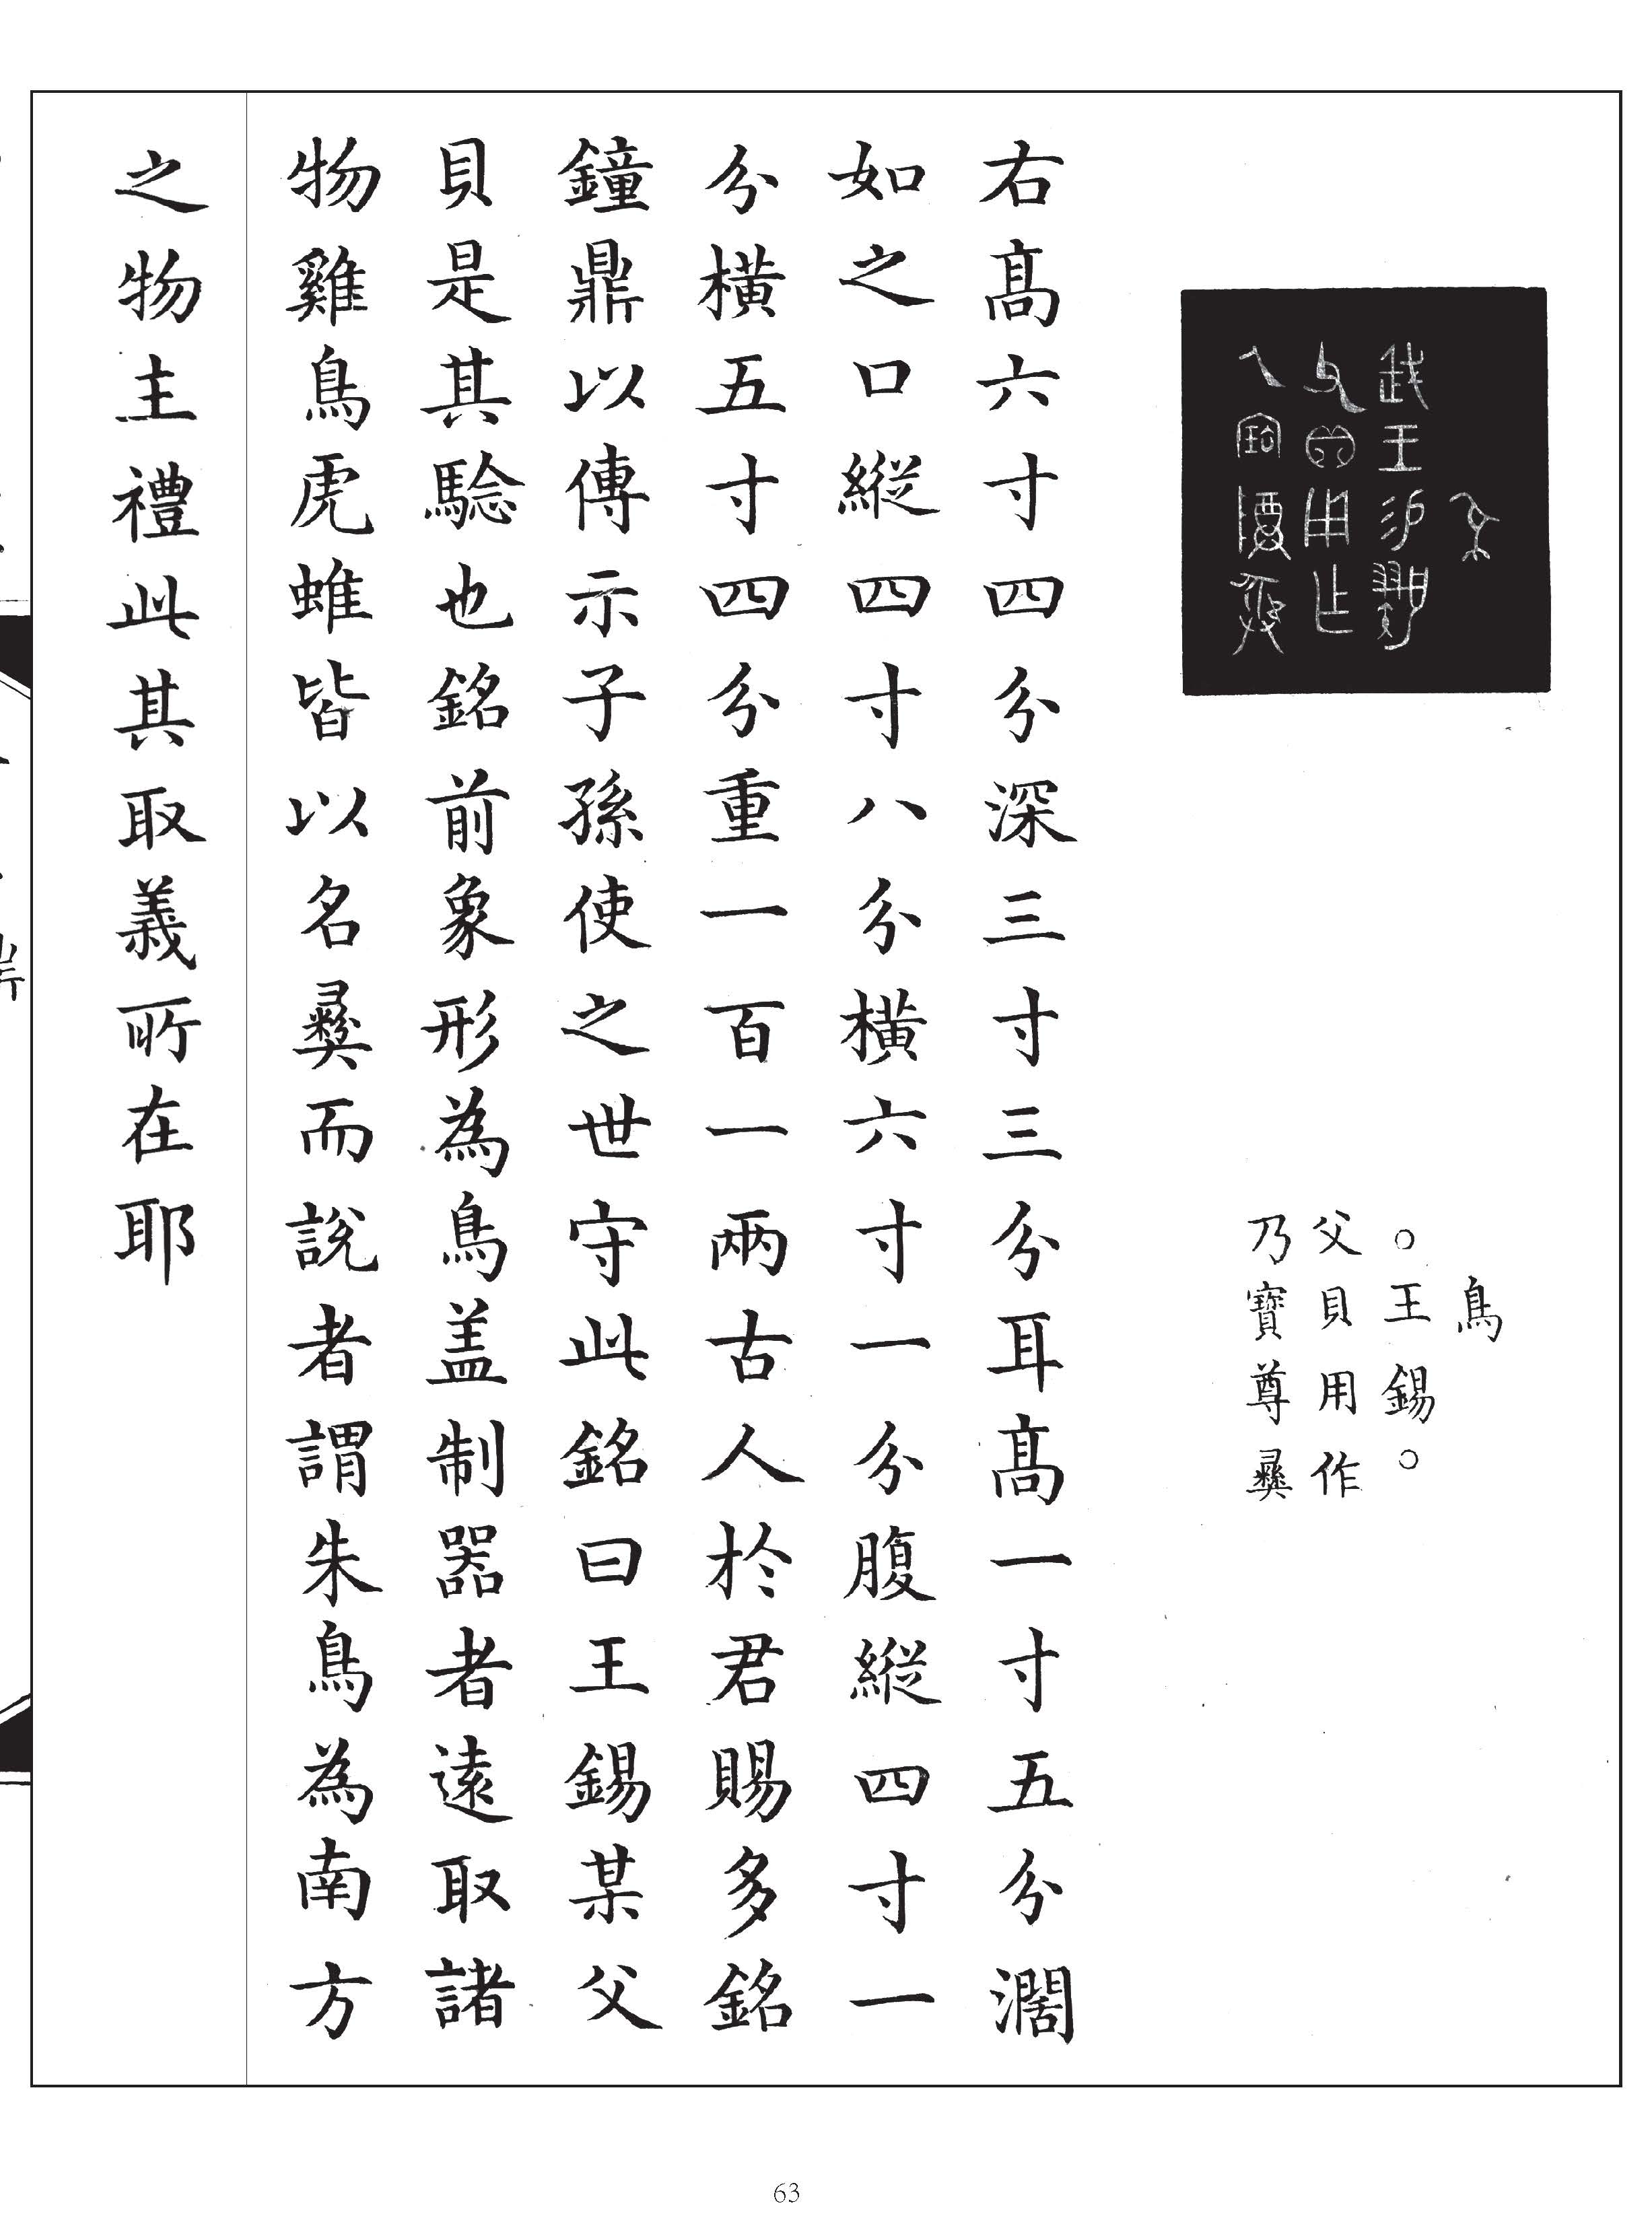 鳥
○王錫○
父貝用作
乃寶尊彝
右髙六寸四分深三寸三分耳髙一寸五分濶
如之口縱四寸八分橫六寸一分腹縱四寸一
分橫五寸四分重一百一兩古人於君賜多銘
鐘鼎以傳示子孫使之世守此銘曰王錫某父
貝是其騐也銘前象形為鳥盖制器者逺取諸
物雞鳥虎蜼皆以名彝而説者謂朱鳥為南方
之物主禮此其取義所在耶
63